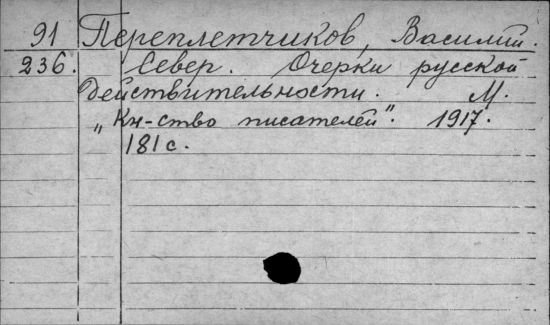 91 Переплетчиков, Василий.
236. Север. Очерки русской
действительности. М.
„Кн-ство писателей". 1917.
181 с.